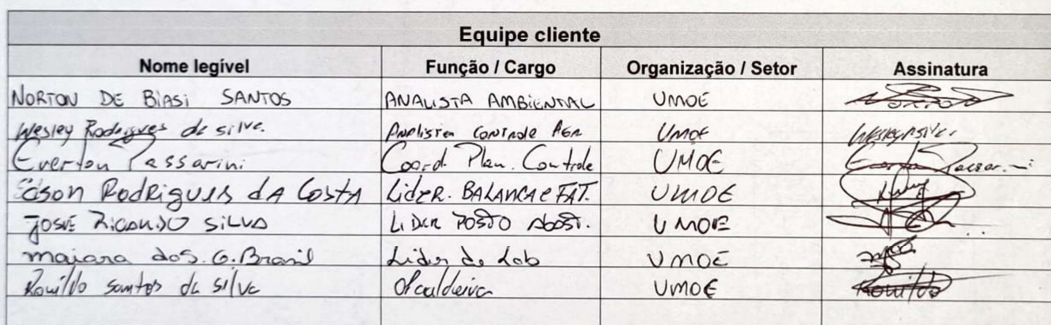 Equipe cliente
Nome legível Função / Cargo Organização / Setor Assinatura
NORTON DE BIASI SANTOS ANALISTA AMBIENTAL UMOE
Wesley Rodrigues da silva. Analista controle AGR UMOE
Everton Passarini Coord. Plan. Controle UMOE
Edson RodRigues dA CostA LideR. BALANCA e FAT. UMOE
JOSUÉ RICARDO SILVA LIDER POSTO ABAST. UMOE
maiara dos S. G. Brasil Lider de Lab UMOE
Ronildo santos da silva Opcaldeira UMOE